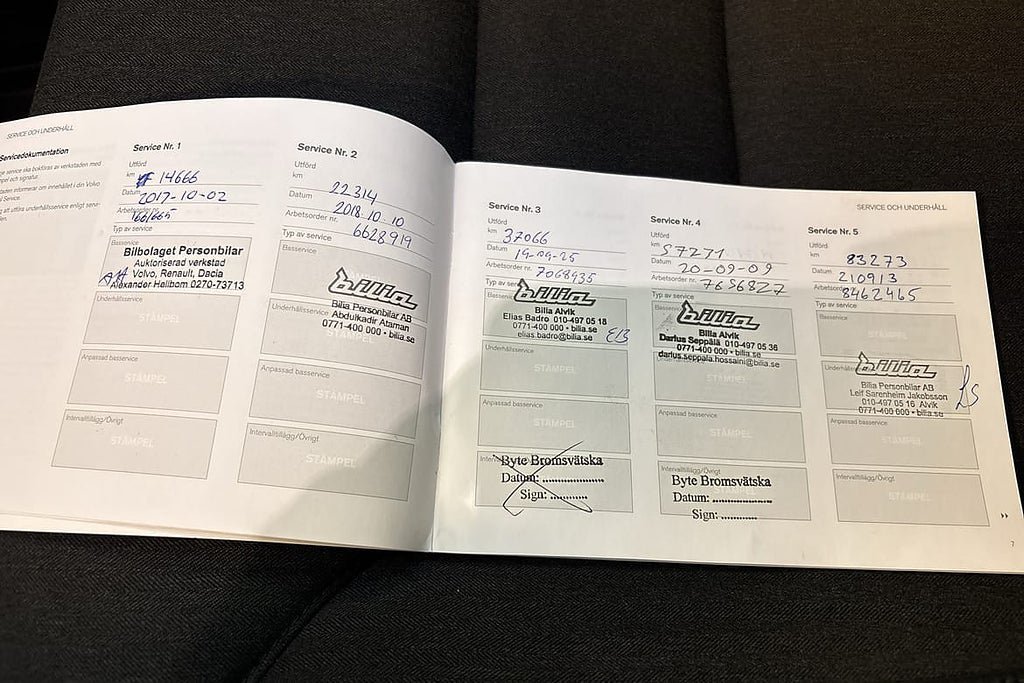 SERVICE OCH UNDERHÅLL
Servicedokumentation
service ska bokföras av verkstaden med
och signatur.
informerar om innehållet i din Volvo
Service.
att utföra underhållsservice enligt
Service Nr. 1
Utförd
km 14666
Datum 2017-10-02
Arbetsorder nr.
166/665
Typ av service
Basservice
Bilbolaget Personbilar
Auktoriserad verkstad
Volvo, Renault, Dacia
Alexander Hellbom 0270-73713
Underhållsservice
STÄMPEL
Anpassad basservice
STÄMPEL
Intervalltillägg/Övrigt
STÄMPEL
Service Nr. 2
Utförd
km 22314
Datum 2018.10.10
Arbetsorder nr. 6628919
Typ av service
Basservice
bilia
Bilia Personbilar AB
Abdulkadir Ataman
0771-400 000 • bilia.se
Underhållsservice
STÄMPEL
Anpassad basservice
STÄMPEL
Intervalltillägg/Övrigt
STÄMPEL
Service Nr. 3
Utförd
km 37066
Datum 19-09-25
Arbetsorder nr. 7068935
Typ av
Basservice
bilia
Bilia Alvik
Elias Badro 010-497 05 18
0771-400 000 • bilia.se
elias.badro@bilia.se
EB
Underhållsservice
STÄMPEL
Anpassad basservice
STÄMPEL
Byte Bromsvätska
Datum: ..................
Sign: ...........
Service Nr. 4
Utförd
km 57271
Datum 20-09-09
Arbetsorder nr. 7656827
Typ av service
bilia
Bilia Alvik
Darius Seppälä 010-497 05 36
0771-400 000 • bilia.se
darius.seppala.hossaini@bilia.se
STÄMPEL
Anpassad basservice
STÄMPEL
Intervalltillägg/Övrigt
Byte Bromsvätska
Datum: ..................
Sign: ...........
SERVICE OCH UNDERHÅLL
Service Nr. 5
Utförd
km 83273
Datum 210913
Arbetsorder nr. 8462465
Typ av service
Basservice
STÄMPEL
bilia
Bilia Personbilar AB
Leif Sarenheim Jakobsson
010-497 05 16 Alvik
0771-400 000 • bilia.se
LS
Anpassad basservice
STÄMPEL
Intervalltillägg/Övrigt
STÄMPEL
7